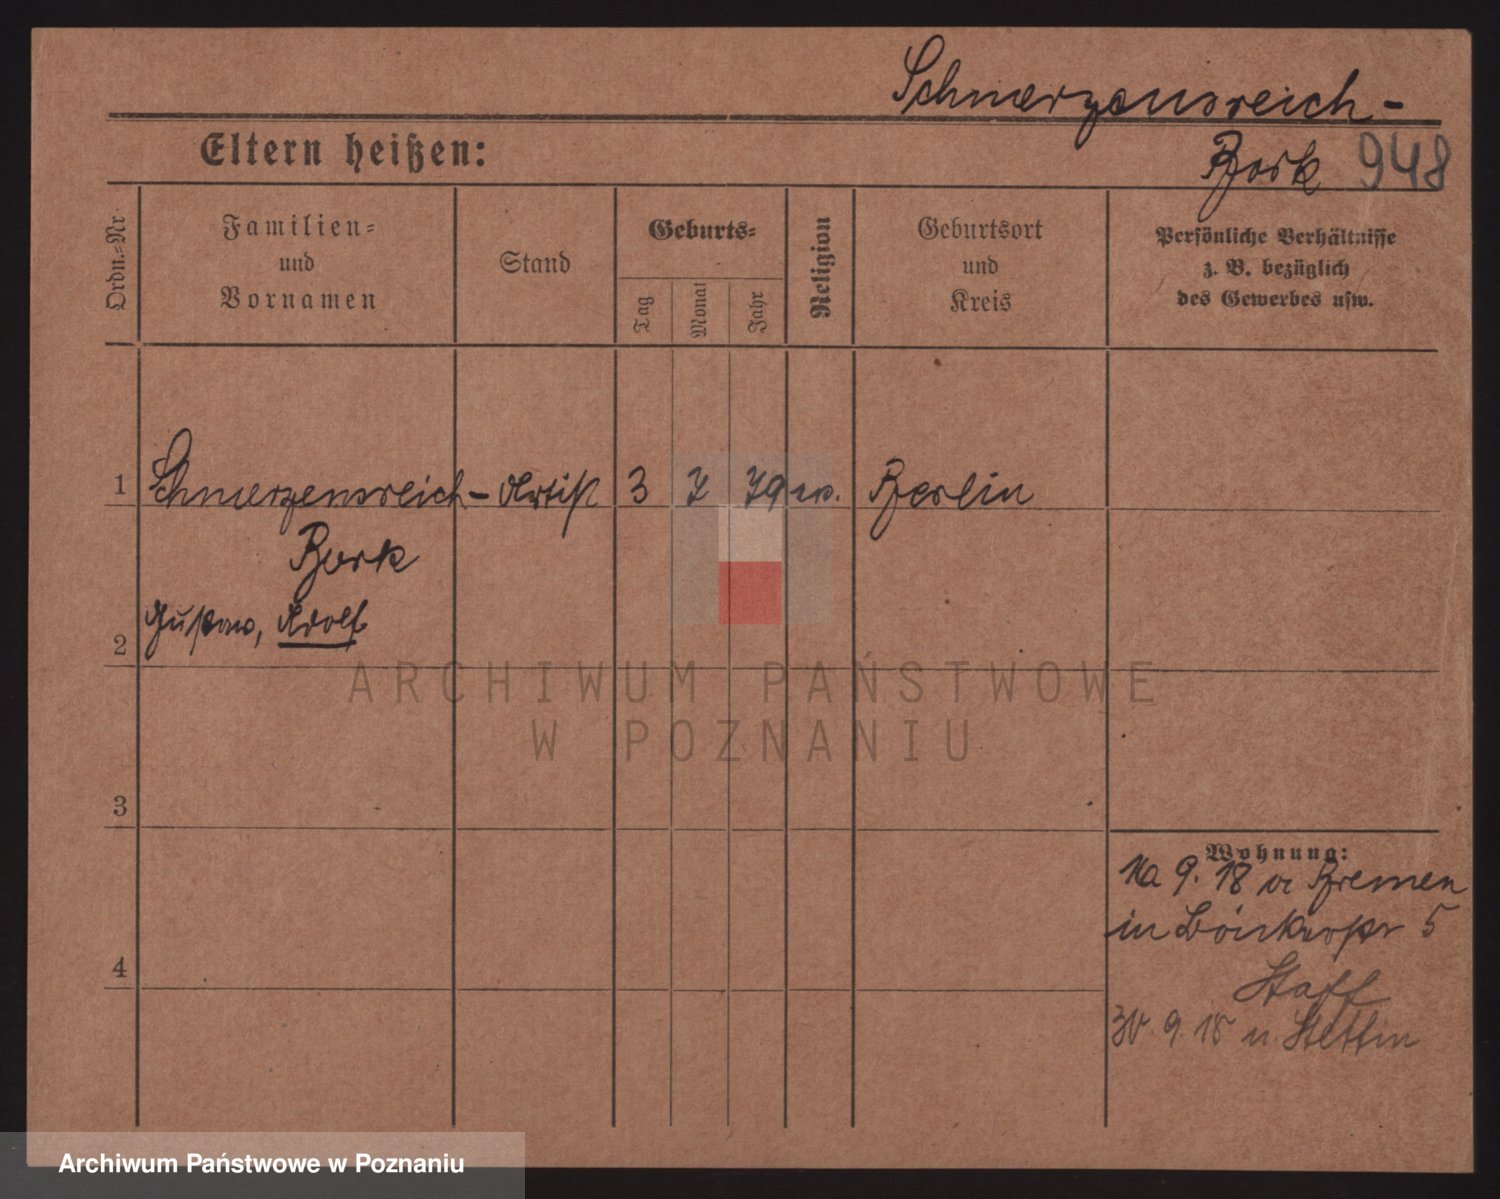 Schmerzensreich-
Eltern heißen:
Bork 948
Ordn.-Nr.
Familien-
und
Vornamen
Stand
Geburts-
Tag
Monat
Jahr
Religion
Geburtsort
und
Kreis
Persönliche Verhältnisse
z. B. bezüglich
des Gewerbes usw.
1 Schmerzensreich- Artist 3 7 79 ev. Berlin
Bork
2 Gustav, Adolf
ARCHIWUM PAŃSTWOWE
W POZNANIU
3
Wohnung:
9. 18 v Bremen
in 5
4
Staff
30. 9. 18 n. Stettin
Archiwum Państwowe w Poznaniu